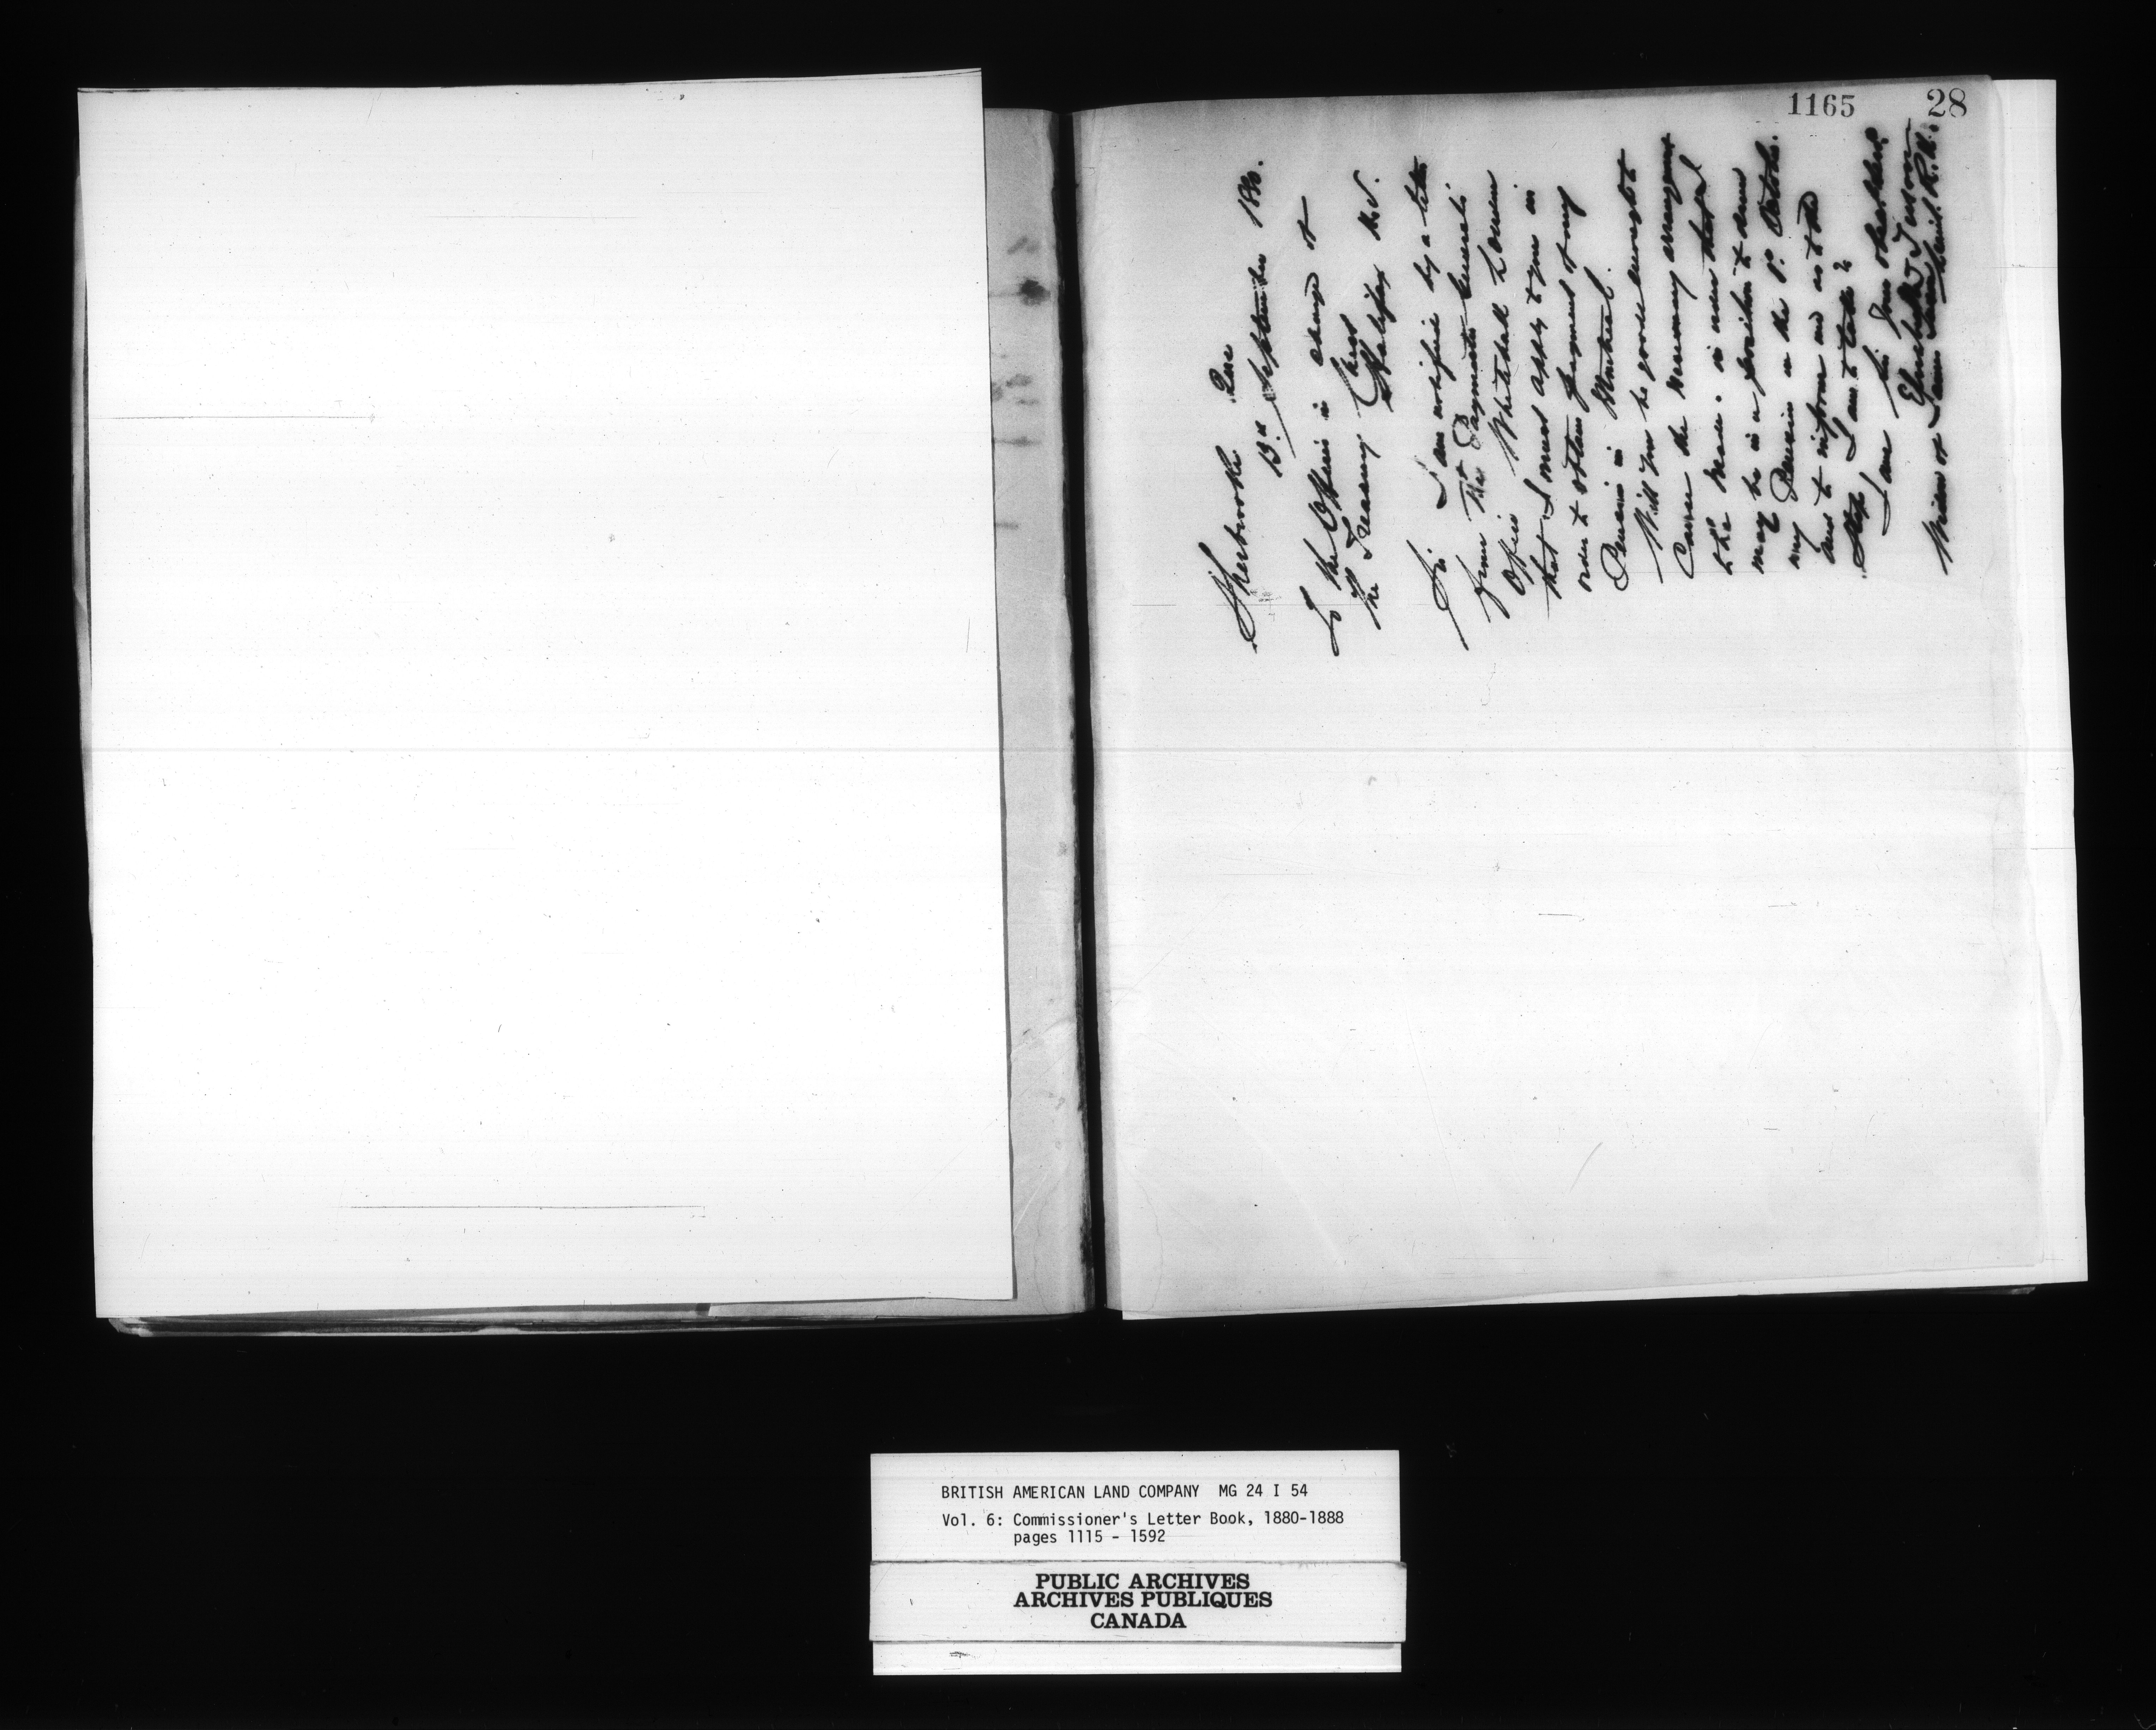 1165 28
Sherbrooke Que
13th September 1880.
To the Officer in charge of
the Treasury Chest
Halifax N.S.
Sir I am notified by a letter
from the Paymaster General's
Office Whitehall London
that I must apply to you in
order to obtain payment of my
Pension in Montreal.
Will you be good enough to
cause the necessary arrangements
to be made in order that I
may be in a position to draw
my Pension on the 1st October
and to inform me as to the
steps I am to take?
I am Sir Your obedient
BRITISH AMERICAN LAND COMPANY MG 24 I 54
Vol. 6: Commissioner's Letter Book, 1880-1888
pages 1115 - 1592
PUBLIC ARCHIVES
ARCHIVES PUBLIQUES
CANADA